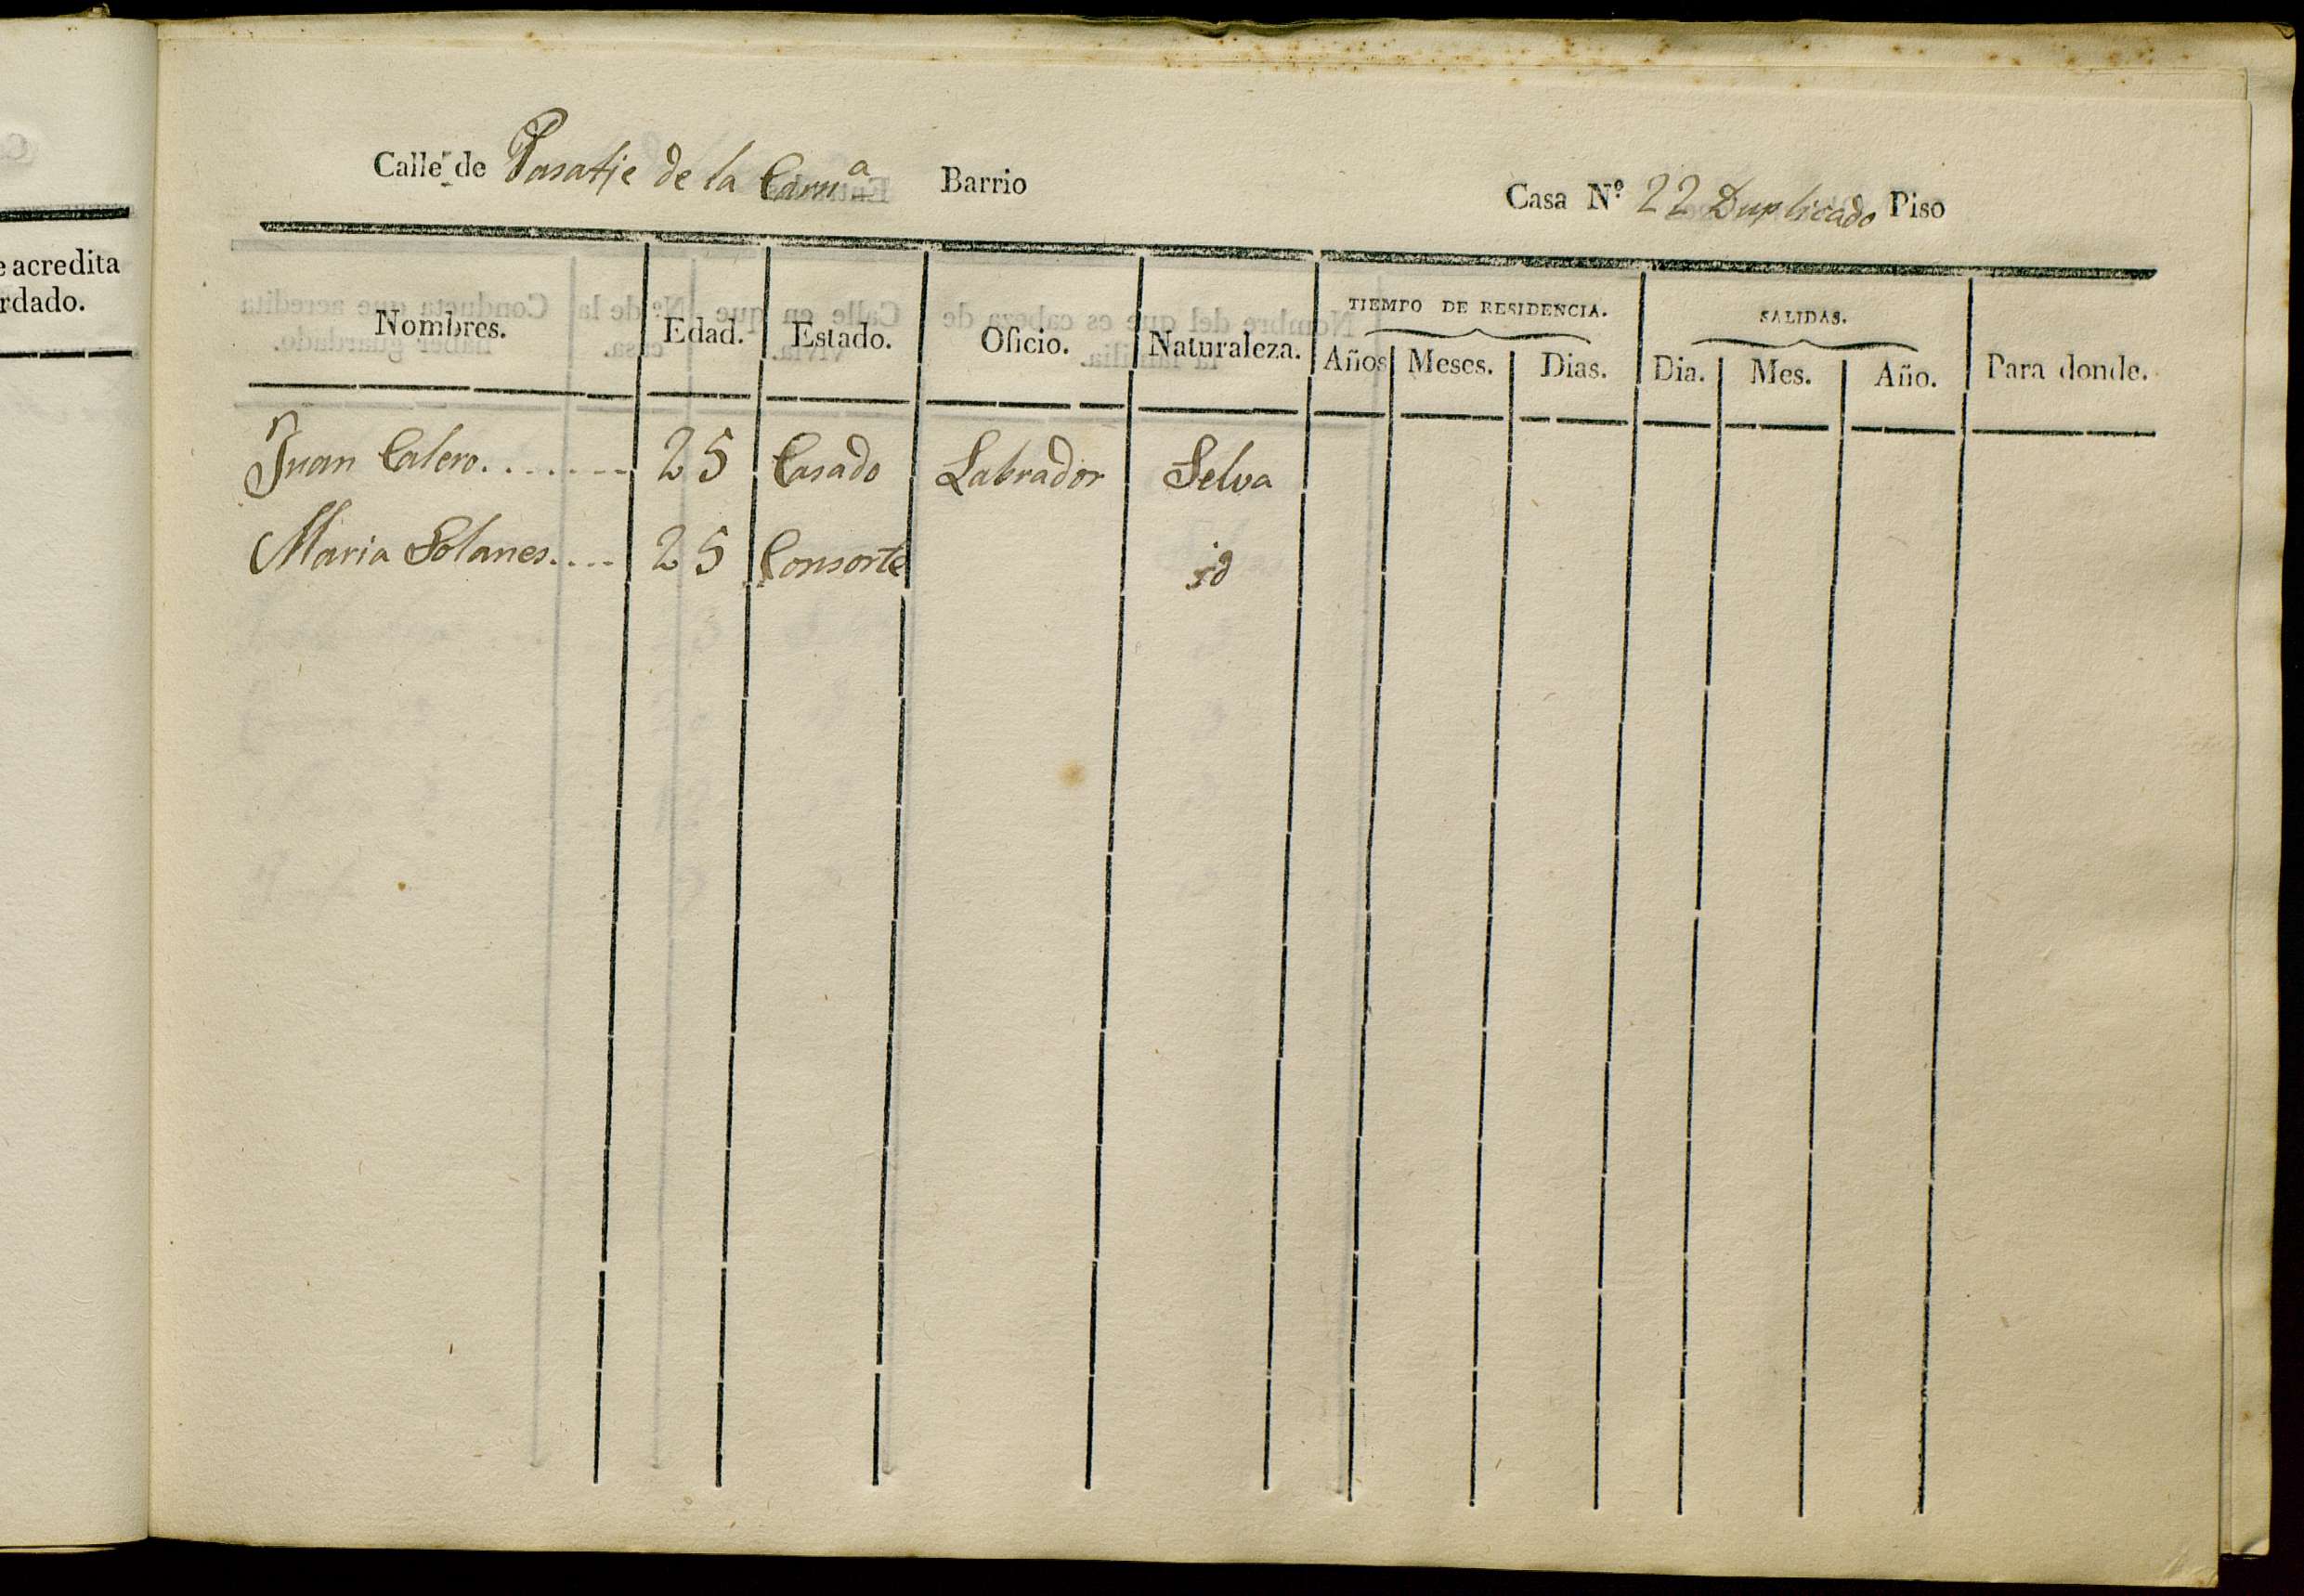 e acredita
rdado.
Calle de Pasatje de la Carn.ª Barrio Casa N.º 22 Duplicado Piso
Nombres. Edad. Estado. Oficio. Naturaleza. TIEMPO DE RESIDENCIA. SALIDAS. Para donde.
Años Meses. Dias. Dia. Mes. Año.
Juan Calero........ 25 Casado Labrador Selva
Maria Solanes.... 25 Consorte id